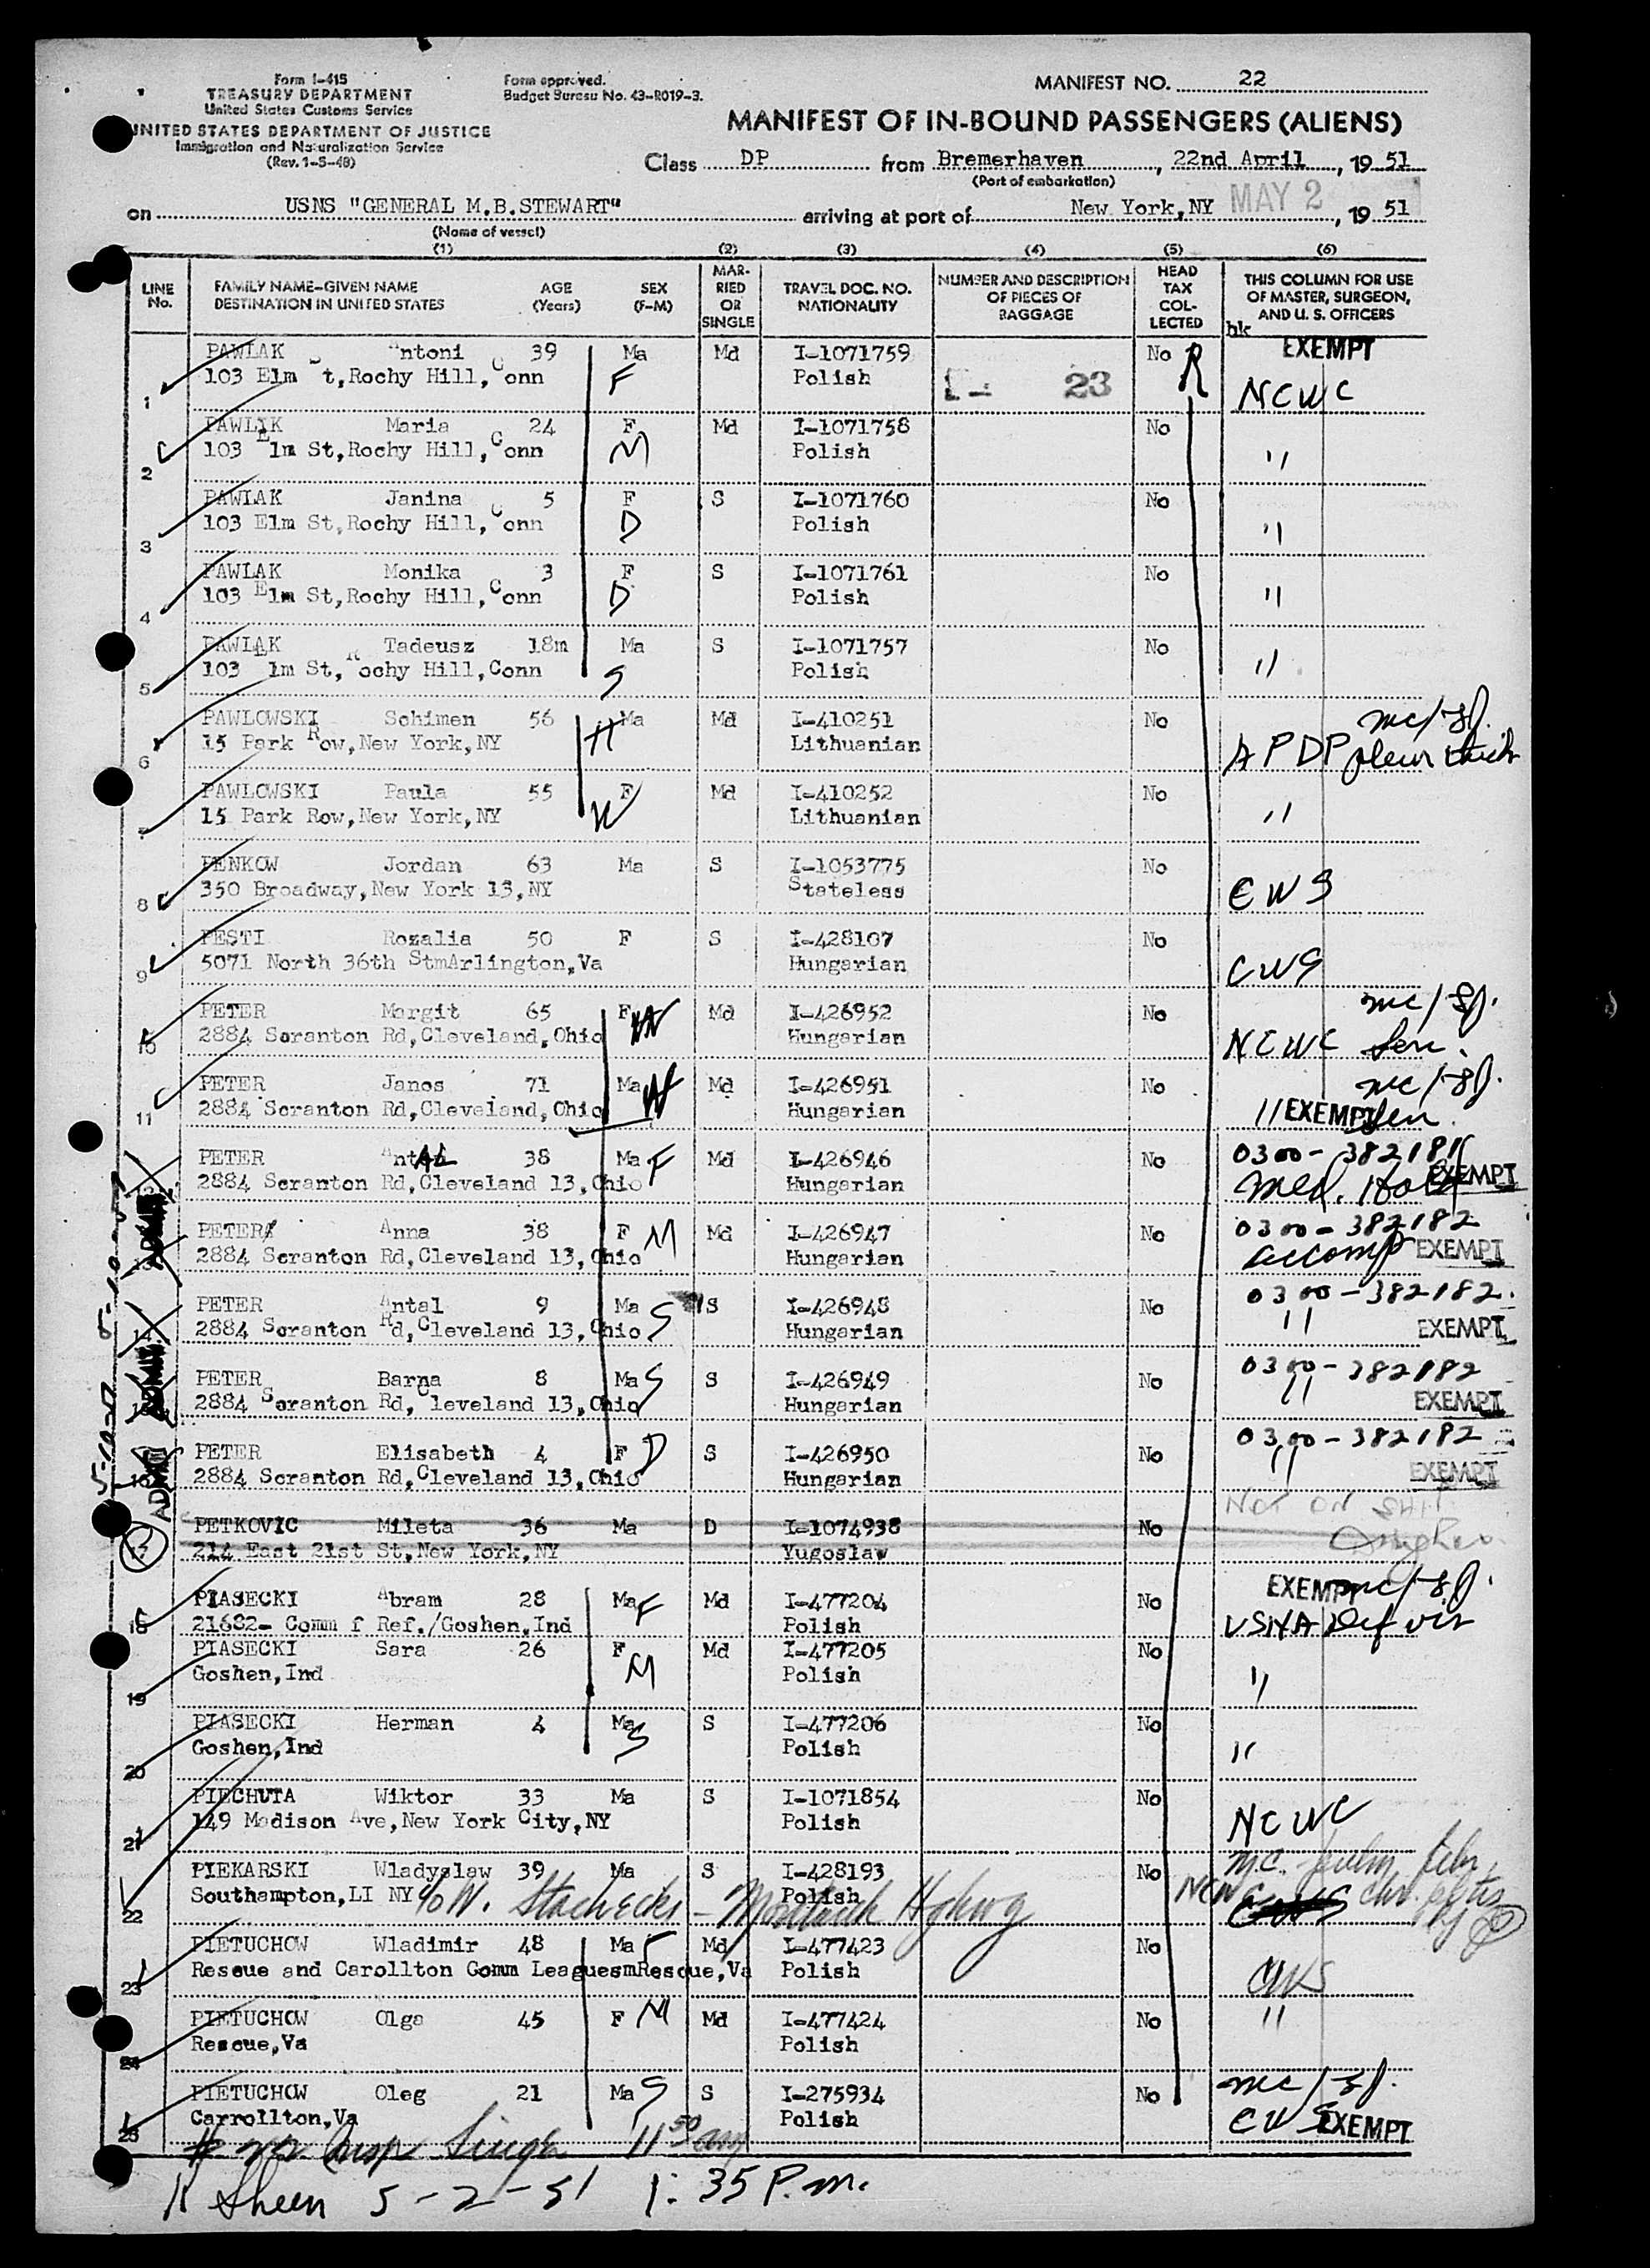 Form I-415
TREASURY DEPARTMENT
United States Customs Service
UNITED STATES DEPARTMENT OF JUSTICE
Immigration and Naturalization Service
(Rev. 1-5-48)
Form approved.
Budget Bureau No. 43-R019-3.
MANIFEST NO. 22
MANIFEST OF IN-BOUND PASSENGERS (ALIENS)
Class DP from Bremerhaven, 22nd April, 19 51
(Port of embarkation)
on USNS "GENERAL M.B.STEWART" arriving at port of New York,NY MAY 2, 19 51
(Name of vessel)
(1) (2) (3) (4) (5) (6)
LINE No. FAMILY NAME–GIVEN NAME DESTINATION IN UNITED STATES AGE (Years) SEX (F–M) MARRIED OR SINGLE TRAVEL DOC. NO. NATIONALITY NUMBER AND DESCRIPTION OF PIECES OF BAGGAGE HEAD TAX COLLECTED THIS COLUMN FOR USE OF MASTER, SURGEON, AND U. S. OFFICERS
hk
PAWLAK Antoni 39 Ma Md I-1071759 No R EXEMPT
1 103 Elm St,Rochy Hill,Conn F Polish 23 NCWC
PAWLAK Maria 24 F Md I-1071758 No
2 103 Elm St,Rochy Hill,Conn M Polish "
PAWLAK Janina 5 F S I-1071760 No
3 103 Elm St,Rochy Hill,Conn D Polish "
PAWLAK Monika 3 F S I-1071761 No
4 103 Elm St,Rochy Hill,Conn D Polish "
PAWLAK Tadeusz 18m Ma S I-1071757 No
5 103 Elm St,Rochy Hill,Conn S Polish "
PAWLOWSKI Schimen 56 Ma Md I-410251 No
6 15 Park Row,New York,NY H Lithuanian APDP
PAWLOWSKI Paula 55 F Md I-410252 No
7 15 Park Row,New York,NY W Lithuanian "
PENKOW Jordan 63 Ma S I-1053775 No
8 350 Broadway,New York 13,NY Stateless CWS
PESTI Rozalia 50 F S I-428107 No
9 5071 North 36th StmArlington,Va Hungarian CWS
PETER Margit 65 F W Md I-426952 No
10 2884 Scranton Rd,Cleveland,Ohio Hungarian NCWC Sen.
PETER Janos 71 Ma Md I-426951 No
11 2884 Scranton Rd,Cleveland,Ohio Hungarian " EXEMPT Sen.
PETER Antal 38 Ma F Md I-426946 No 0300-382181
2884 Scranton Rd,Cleveland 13,Ohio Hungarian Med. Hold EXEMPT
PETER Anna 38 F M Md I-426947 No 0300-382182
2884 Scranton Rd,Cleveland 13,Ohio Hungarian accomp EXEMPT
PETER Antal 9 Ma S S I-426948 No 0300-382182.
2884 Scranton Rd,Cleveland 13,Ohio Hungarian " EXEMPT
PETER Barna 8 Ma S S I-426949 No 0300-382182
2884 Scranton Rd,Cleveland 13,Ohio Hungarian " EXEMPT
PETER Elisabeth 4 F D S I-426950 No 0300-382182
2884 Scranton Rd,Cleveland 13,Ohio Hungarian " EXEMPT
NOT ON SHIP
PETKOVIC Mileta 36 Ma D I-1074938 No
17 214 East 21st St,New York,NY Yugoslaw
PIASECKI Abram 28 Ma F Md I-477204 No EXEMPT
18 21682- Comm f Ref./Goshen,Ind Polish USNA Def vis
PIASECKI Sara 26 F M Md I-477205 No
19 Goshen,Ind Polish "
PIASECKI Herman 4 Ma S S I-477206 No
20 Goshen,Ind Polish "
PIECHUTA Wiktor 33 Ma S I-1071854 No
21 149 Madison Ave,New York City,NY Polish NCWC
PIEKARSKI Wladyslaw 39 Ma S I-428193 No
22 Southampton,LI NY c/o W. Stachecki - Montauk Hghwy Polish NCWC
PIETUCHOW Wladimir 48 Ma F Md I-477423 No
23 Rescue and Carollton Comm LeaguesmRescue,Va Polish CWS
PIETUCHOW Olga 45 F M Md I-477424 No "
24 Rescue,Va Polish
PIETUCHOW Oleg 21 Ma S S I-275934 No
25 Carrollton,Va Polish CWS EXEMPT
Insp. 11 50 am
Sheen 5-2-51 1:35 P.m.